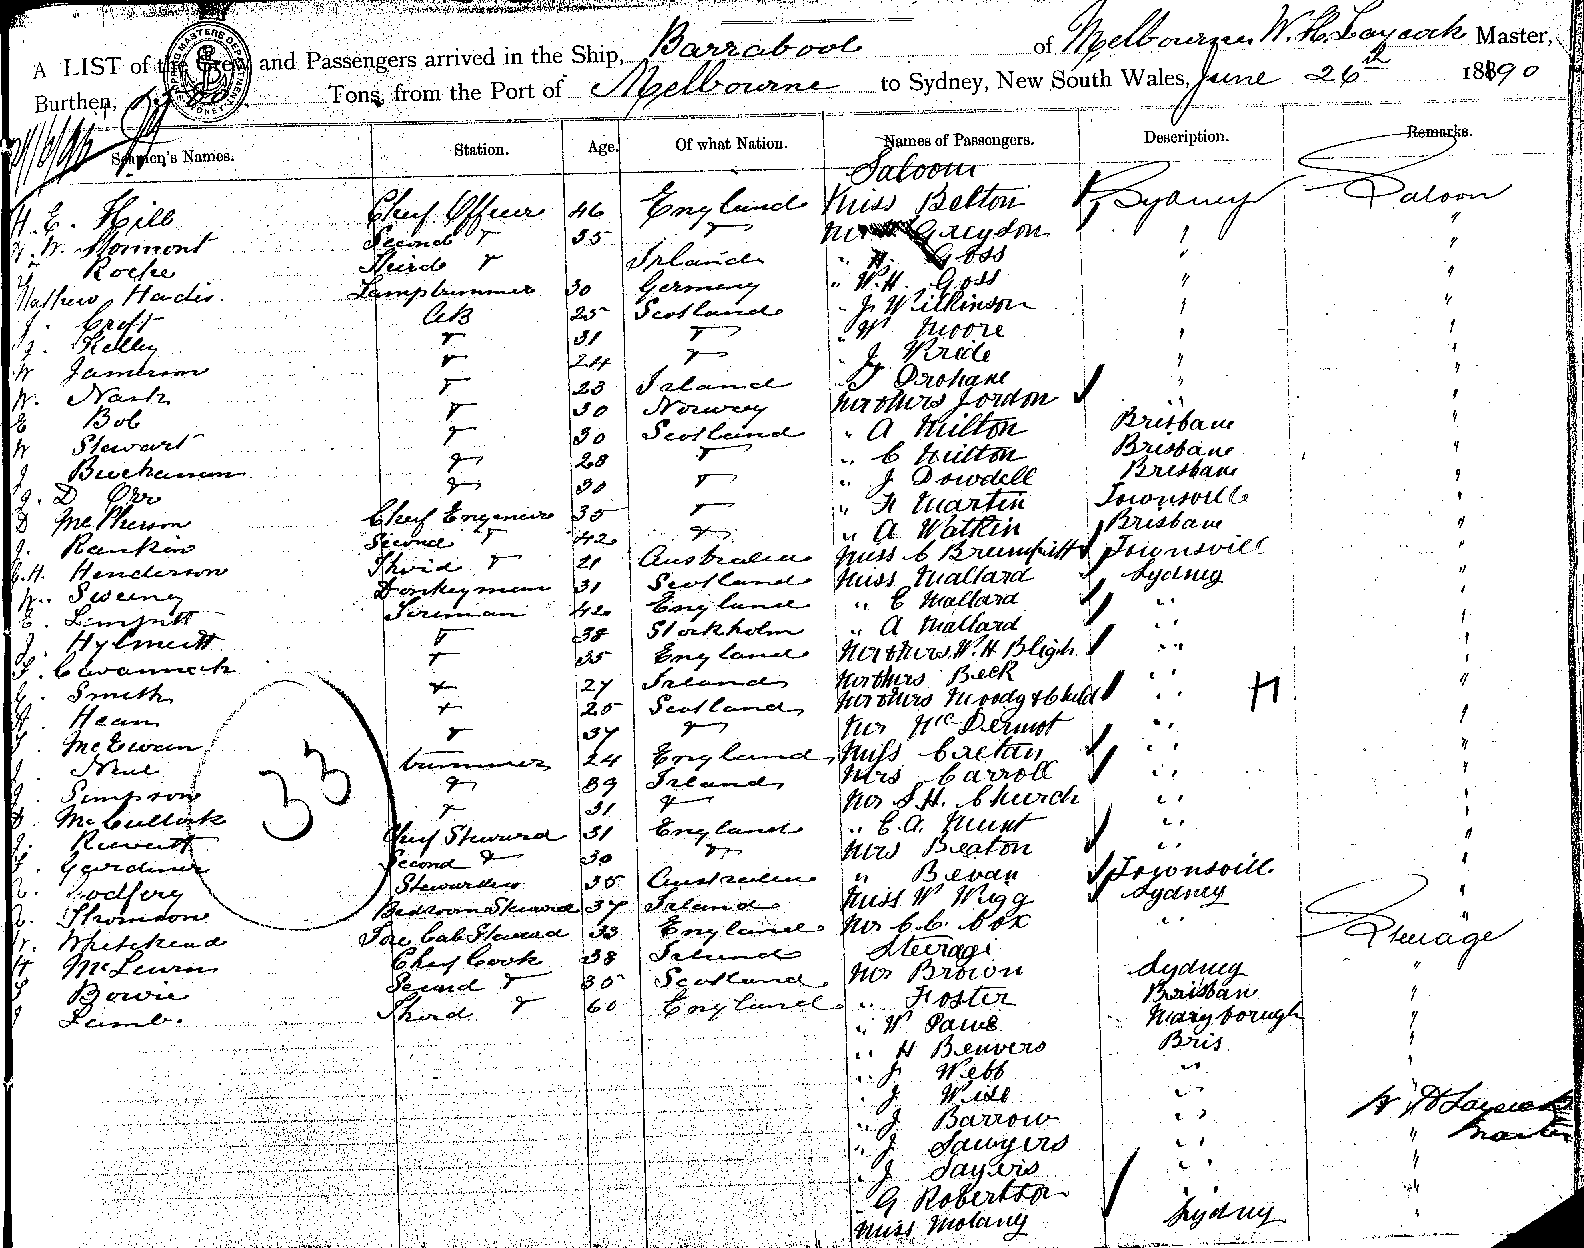 A LIST of the Crew and Passengers arrived in the Ship, Barrabool of Melbourne, W. H. Laycock Master,
Burthen, Tons, from the Port of Melbourne to Sydney, New South Wales, June 26th 1890
Seamen's Names. Station. Age. Of what Nation. Names of Passengers. Description. Remarks.
Saloon
H. E. Hill Chief Officer 46 England Miss Belton Sydney Saloon
Second " 35 " Mr Greydon " "
Roche Third " Ireland " H. Goss " "
Mathew Hadis. Lamptrimmer 30 Germany " W. H. Goss " "
J. Croft AB 25 Scotland " J Wilkinson " "
J. Kelly " 31 " " W Moore " "
W Jamieson " 24 " " J Pride " "
W. Nash " 23 Ireland " T Drohane " "
Bob " 30 Norway Mr & Mrs Jordon " "
W Stewart " 30 Scotland " A Milton Brisbane "
J Buchanan " 28 " " C Milton Brisbane "
J. D Orr " 30 " " J Dowdell Brisbane "
D McPherson Chief Engineer 35 " " H Martin Townsville "
J. Rankin Second " 42 " " A Watkin Brisbane "
Henderson Third " 21 Australia Miss C Brumfitt Townsvill "
Sweeney Donkeyman 31 Scotland Miss Mallard Sydney "
Fireman 42 England " E Mallard " "
J. " 38 Stockholm " A Mallard " "
" 35 England Mr & Mrs W. H Bligh " "
Smith " 27 Ireland Mr & Mrs Beck " H "
" 25 Scotland Mr & Mrs Moody & Child " "
McEwan " 37 " Mr McDermot " "
J. trimmer 24 England Miss Cretan " "
J. Simpson " 39 Ireland Mrs Carroll " "
McCullock " 31 " Mr S. H. Church " "
33
J. Chief Steward 31 England " E. A. Hunt " "
Gardiner Second " 30 " Mrs Beaton " "
Godfery Stewardess 35 Australia " Bevan Townsvill "
Thomson Bedroom Steward 37 Ireland Miss W Wigg Sydney "
W. Whitehead Fore Cab Steward 33 England Mr C. C. Cox " Steerage
Steerage
H Chief Cook 38 Ireland Mr Brown Sydney "
Bowie Second " 35 Scotland " Foster Brisban "
J Lamb. Third " 60 England " W Paine Maryborough "
" H Benvers Bris "
" J Webb " "
" J Wise " "
" J Barrow " W H Laycock
" J Sawyers " " Master
" J Sayers " "
G Robertson " "
Miss Molany Sydney "